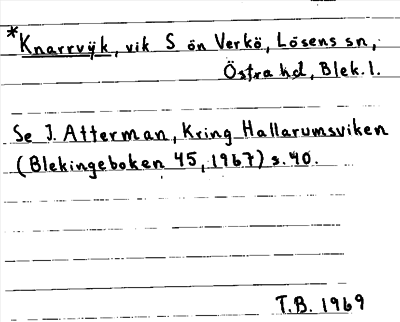 *Knarrvÿk, vik S ön Verkö, Lösens sn,
Östra hd, Blek. l.
Se I. Atterman, Kring Hallarumsviken
(Blekingeboken 45, 1967) s. 40.
T.B. 1969